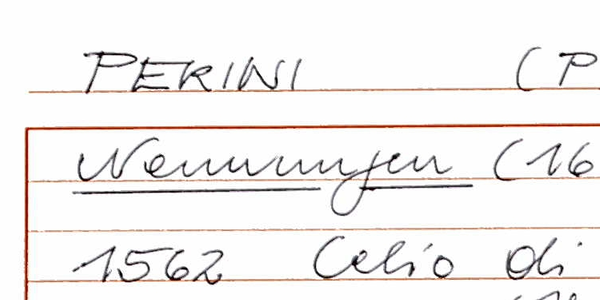 PERINI (P
Nennungen (16
1562 Celio di